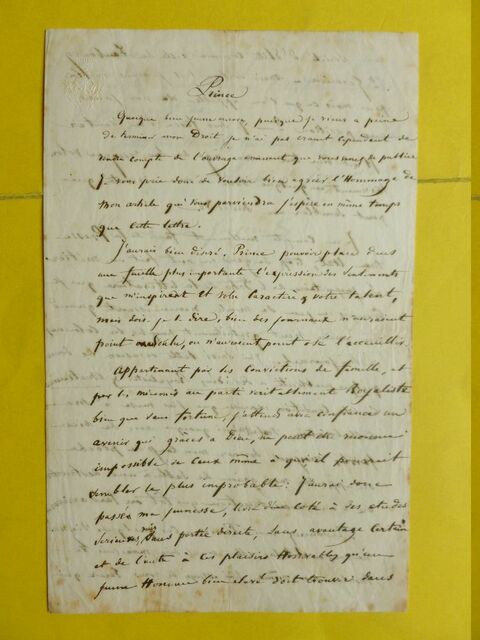 Prince
Quoique bien jeune encore, puisque je viens à peine
de terminer mon Droit je n'ai pas craint cependant de
rendre compte de l'ouvrage éminent que vous venez de publier
Je vous prie donc de vouloir bien agréer l'Hommage de
mon article qui vous parviendra j'espère en même temps
que cette lettre.
J'aurais bien désiré, Prince pouvoir placer dans
une feuille plus importante l'expression des Sentiments
que m'inspirent et votre Caractère et votre talent,
mais dois-je le dire, bien des journaux n'auraient
point voulu, ou n'auraient point osé l'accueillir.
Appartenant par les Convictions de famille, et
par les miennes au parti véritablement Royaliste
bien que sans fortune, j'attends avec confiance un
avenir qui grâces à Dieu, ne peut être
impossible de ceux même à qui il pourrait
sembler le plus improbable: J'aurai donc
passé ma jeunesse, livré d'un coté à des études
sérieuses, mais sans portée directe, sans avantage certain
et de l'autre à ces plaisirs Honorables qu'un
jeune Homme bien élevé doit trouver dans